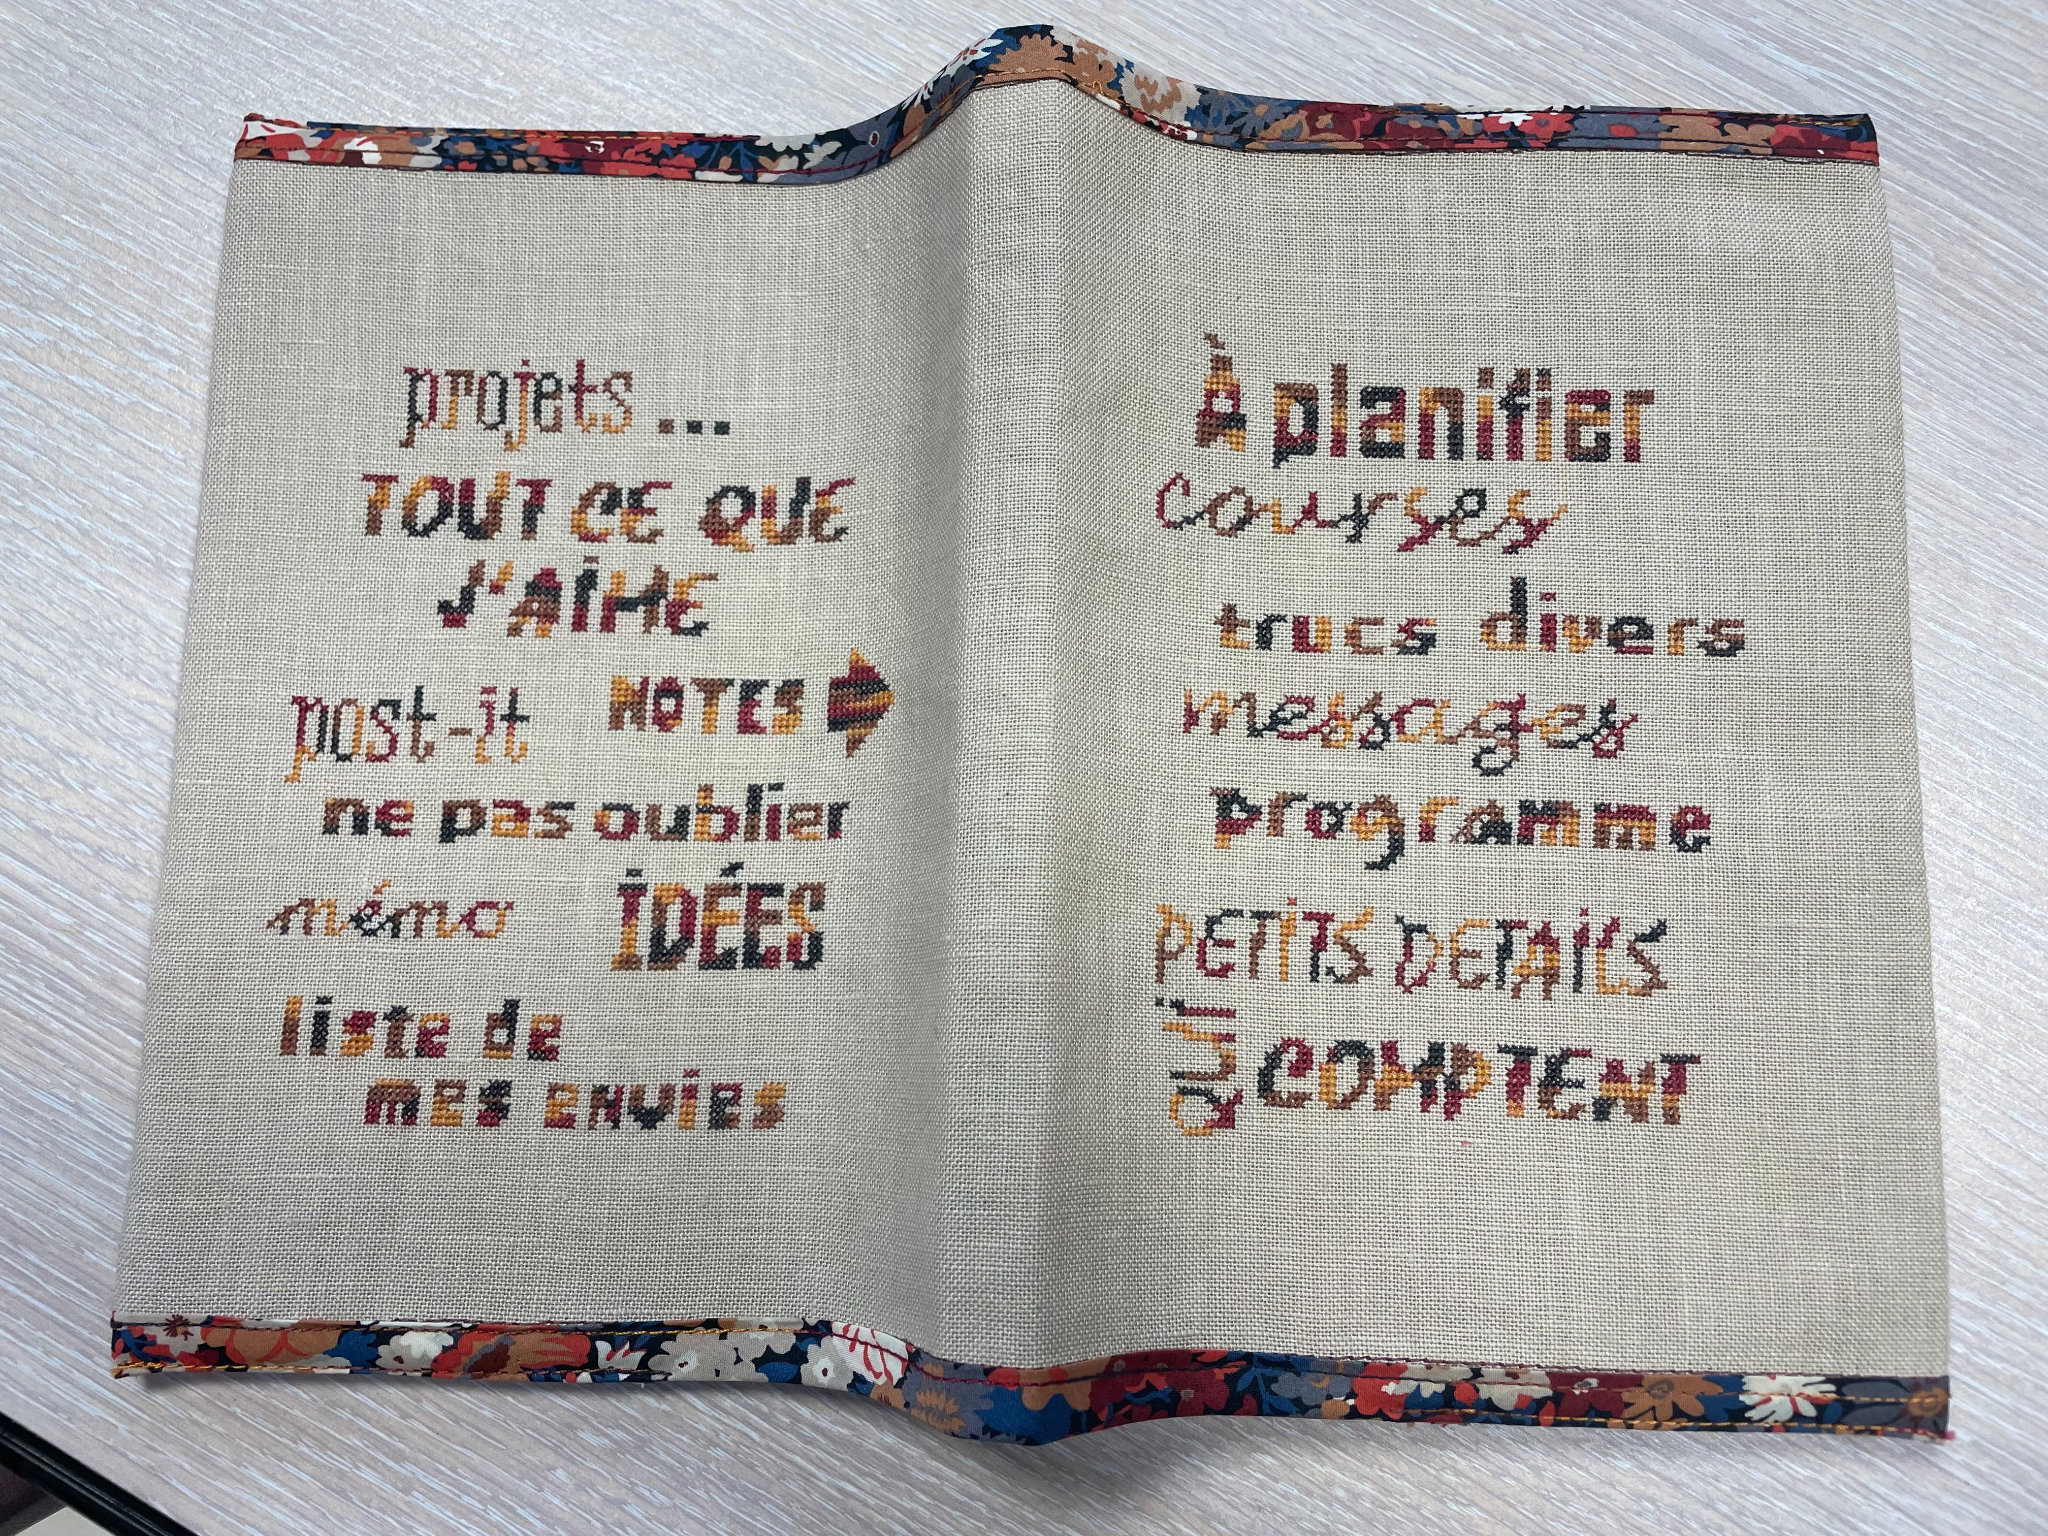 projets ...
TOUT CE QUE
J'AIME
post-it NOTES
ne pas oublier
mémo IDÉES
liste de
mes envies
À planifier
courses
trucs divers
messages
programme
PETITS DETAILS
qui COMPTENT